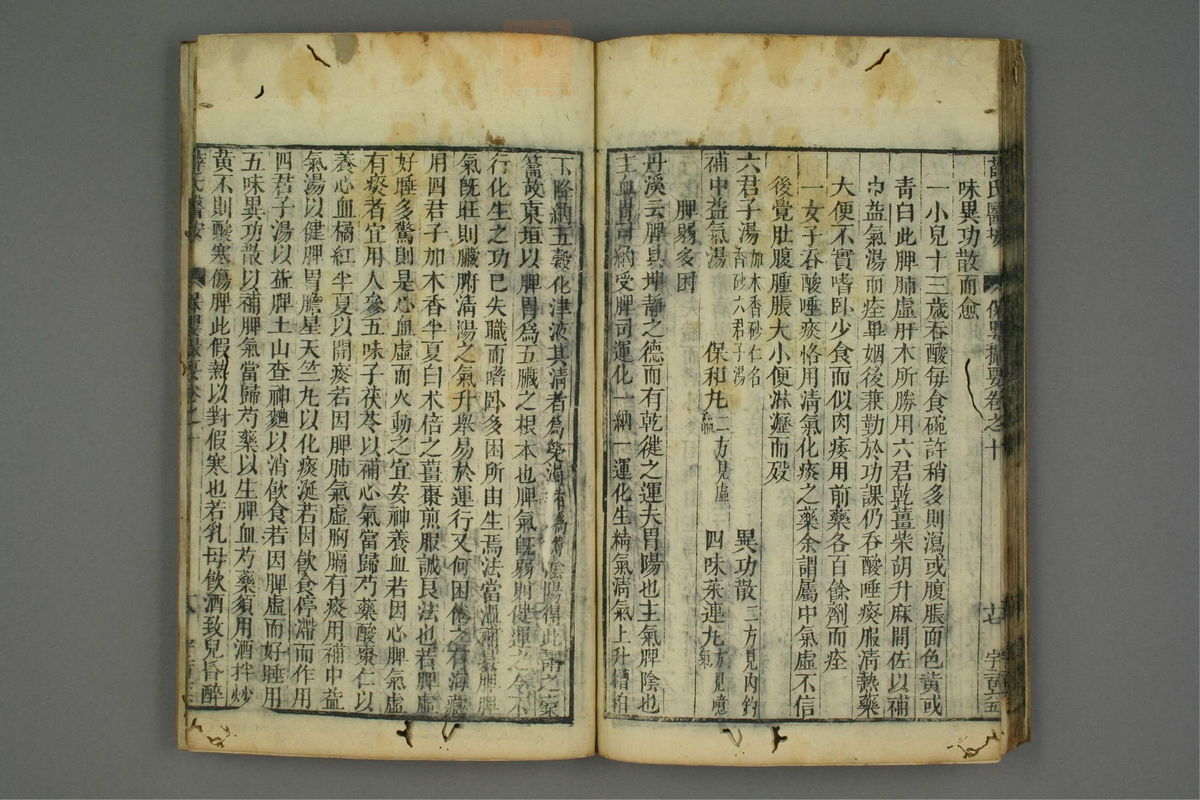 薛氏醫按 保嬰撮要卷之十 廿七 字百五
味異功散而愈
一小兒十三歲吞酸每食碗許稍多則瀉或腹脹面色黃或
靑白此脾肺虛肝木所勝用六君乾薑柴胡升麻間佐以補
中益氣湯而痊畢姻後兼勤於功課仍吞酸唾痰服淸熱藥
大便不實嗜臥少食而似肉痿用前藥各百餘劑而痊
一女子吞酸唾痰恪用淸氣化痰之藥余謂屬中氣虛不信
後覺肚腹腫脹大小便淋瀝而歿
六君子湯加木香砂仁名香砂六君子湯 異功散二方見內釣
補中益氣湯 保和丸二方見虛羸 四味茱連丸方見噫氣
脾弱多困
丹溪云脾具坤靜之德而有乾徤之運夫胃陽也主氣脾陰也
主血胃司納受脾司運化一納一運化生精氣淸氣上升糟粕
下降納五穀化津液其淸者為榮濁者為衛陰陽得此謂之槖
籥故東垣以脾胃為五臟之根本也脾氣旣弱則健運之令不
行化生之功已失職而嗜臥多困所由生焉法當溫補其脾脾
氣旣旺則臟腑淸陽之氣升舉易於運行又何困倦之有海藏
用四君子加木香半夏白术倍之薑棗煎服誠良法也若脾虛
好睡多驚則是心血虛而火動之宜安神養血若因心脾氣虛
有痰者宜用人參五味子茯苓以補心氣當歸芍藥酸棗仁以
養心血橘紅半夏以開痰若因脾肺氣虛胸膈有痰用補中益
氣湯以健脾胃膽星天竺丸以化痰涎若因飲食停滯而作用
四君子湯以益脾土山查神麯以消飲食若因脾虛而好睡用
五味異功散以補脾氣當歸芍藥以生脾血芍藥須用酒拌炒
黃不則酸寒傷脾此假熱以對假寒也若乳母飲酒致兒昏醉
薛氏醫案 保嬰撮要卷之十